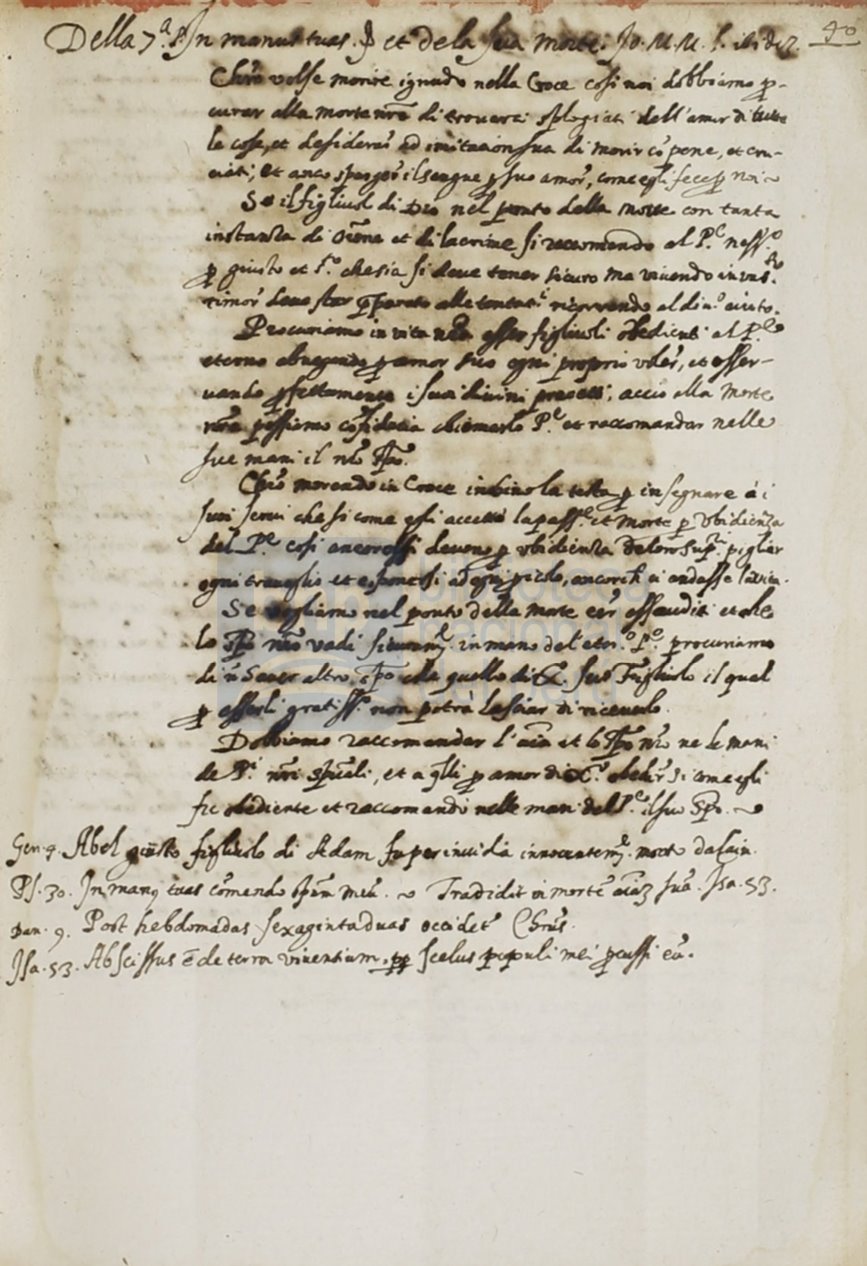 40
Della 7ª P. In manus tuas. et de la sua morte. Io. M. M. L.
Chro̅ volse morire ignudo nella Croce cosi noi dobbiamo p̱-
curar alla morte nr̅a di trovarci spogliati dell'amor di tutte
le cose, et desiderar ad imitation sua di morir cō pene, et cru-
ciati; et anco sparger il sangue p̱ suo amor, come egli fece p̱ noi
Se il figliuol di Dio nel ponto della morte con tanta
instanza di or̅one et di lacrime si raccomando al P.ᵉ ness.º
p̱ giusto et s.ᵗᵒ che sia si deve tener sicuro ma vivendo in
timor deve star p̱parato alle tentat.ⁱ ricorrendo al div.º aiuto.
Procuriamo in vita esser figliuoli obedienti al P.ᵉ
eterno abnegando p̱ amor suo ogni proprio voler, et osser-
vando p̱fettamente i suoi divini precetti, accio alla morte
nr̅a possiamo cō fidutia chiamarlo P.ᵉ et raccomandar nelle
sue mani il nr̅o Sp̅o.
Chro̅ morendo in Croce inchino la testa p̱ insegnare a i
suoi servi che si come egli accettò la pass.ᵉ et morte p̱ obidienza
del P.ᵉ cosi ancor essi devono p̱ ubidienza de lor sup.ⁱ pigliar
ogni travaglio et esponersi ad ogni piclo, ancorch̅ vi andasse la vita.
Se vogliamo nel ponto della morte e̅er essauditi et che
lo Sp̅o nr̅o vadi sicuram.ᵗᵉ in mano del eter.º P.ᵉ procuriamo
di n̅ haver altro sp̅o che quello di X.º suo Figliuolo il qual
p̱ esserli gratiss.º non potrà lasciar di riceverlo.
Dobbiamo raccomandar l'ai̅a et lo Sp̅o nr̅o ne le mani
de P.ⁱ nr̅i sp̅uali, et a q̅lli p̱ amor di X.º obedir si come egli
fu obediente et raccomandò nelle man del P.ᵉ il suo Sp̅o.
Gen. 4. Abel giusto figliuolo di Adam fu per invidia innocentem.ᵗᵉ morto da Cain.
Ps. 30. In manꝰ tuas cōmendo sp̅um meū. Tradidit in mortē ai̅aꝫ suā. Isa. 53.
Dan. 9. Post hebdomadas sexaginta duas occidet' Chrūs.
Isa. 53. Abscissus ē de terra viventium. pp̱ scelus populi mei p̱cussi eū.